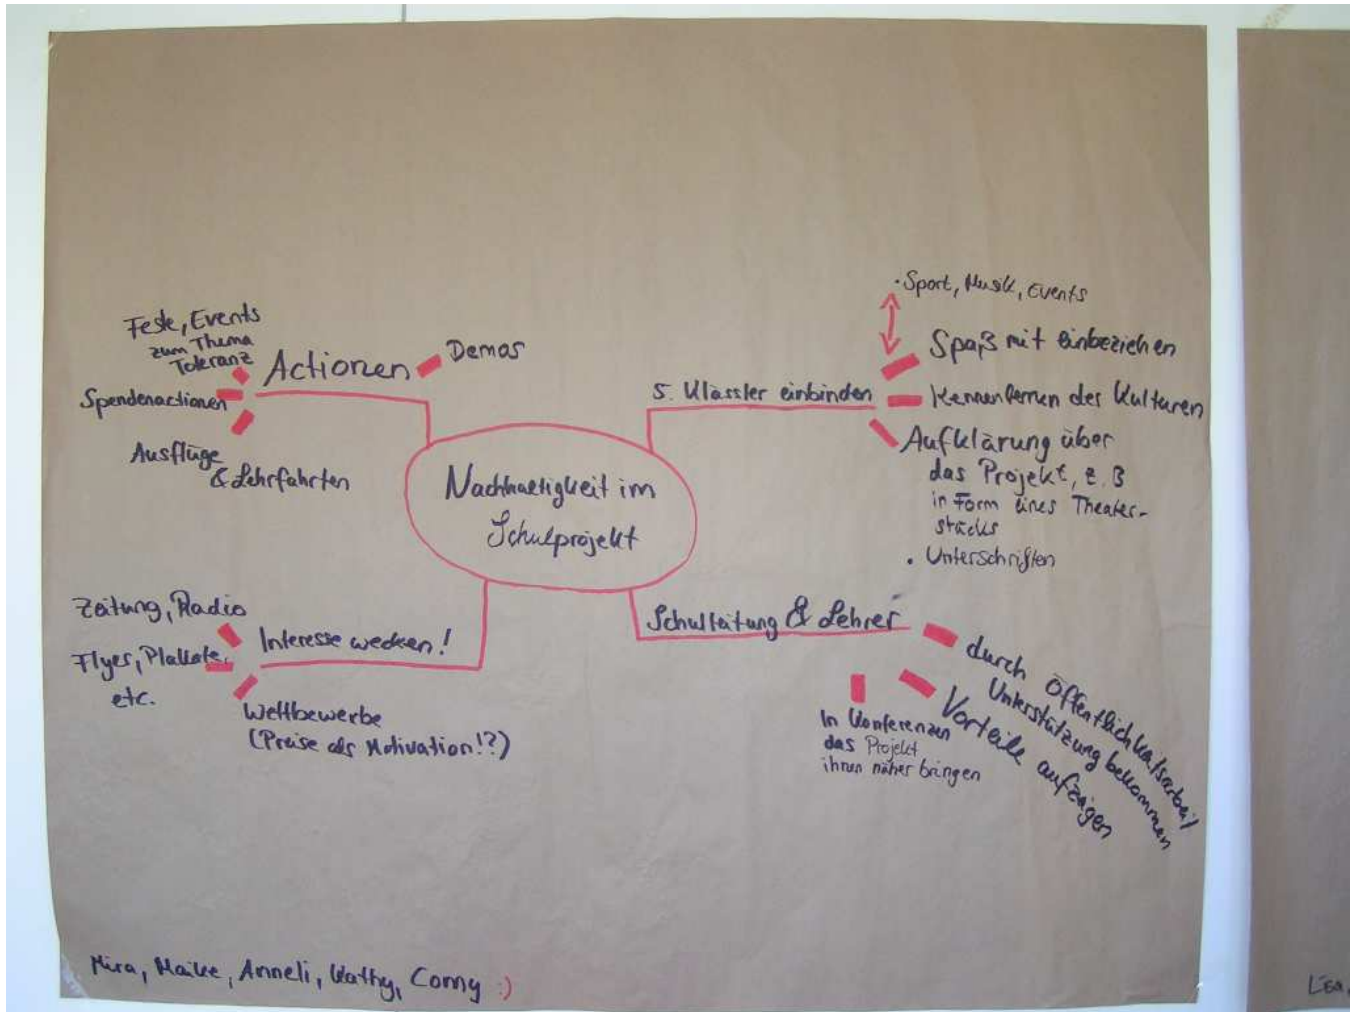 Nachhaltigkeit im
Schulprojekt
Actionen
Demos
Feste, Events
zum Thema
Toleranz
Spendenactionen
Ausflüge
& Lehrfahrten
5. Klässler einbinden
• Sport, Musik, Events
Spaß mit einbeziehen
Kennenlernen der Kulturen
Aufklärung über
das Projekt, z.B
in Form eines Theater-
stücks
• Unterschriften
Interesse wecken!
Zeitung, Radio
Flyer, Plakate,
etc.
Wettbewerbe
(Preise als Motivation!?)
Schulleitung & Lehrer
durch Öffentlichkeitsarbeit
Unterstützung bekommen
Vorteile aufzeigen
In Konferenzen
das Projekt
ihnen näher bringen
Mira, Maike, Anneli, Kathy, Conny :)
Lisa,